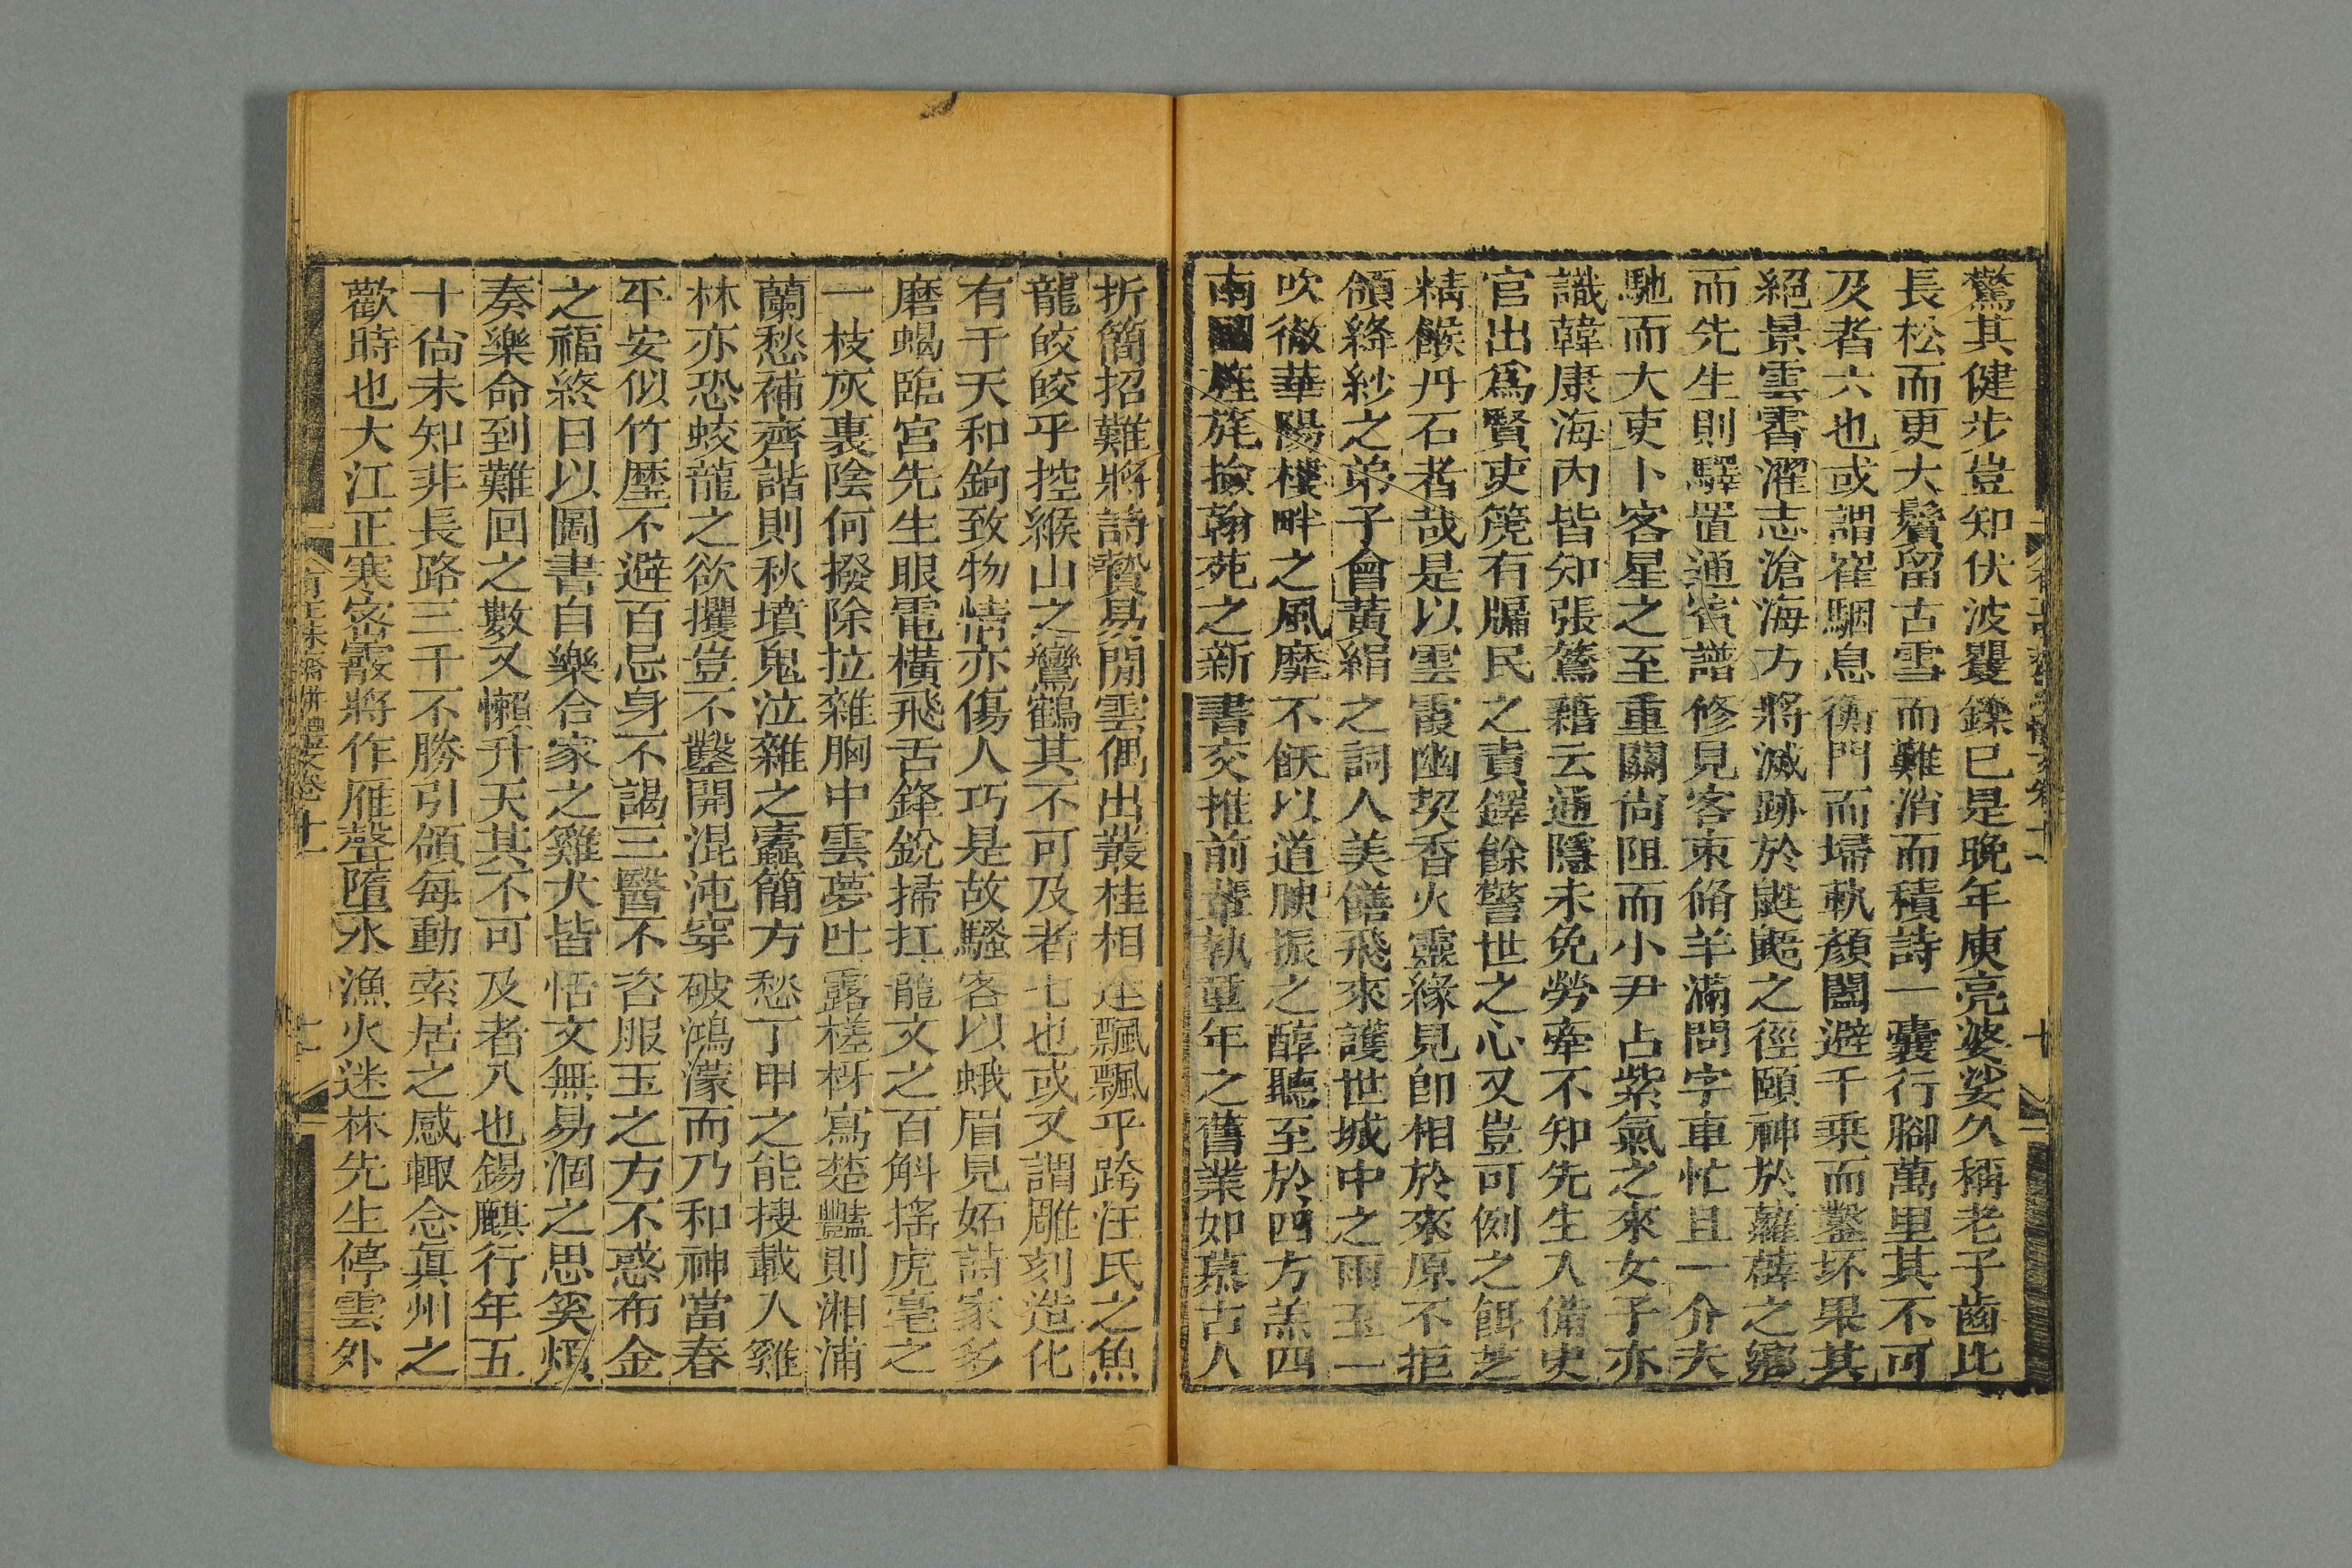 驚其健步豈知伏波矍鑠已是晚年庾亮婆娑久稱老子齒比
長松而更大鬢留古雪而難消而積詩一囊行腳萬里其不可
及者六也或謂崔駰息衡門而埽軌顏闔避千乘而鑿坏果其
絕景雲霄濯志滄海方將滅跡於鼪鼯之徑頤神於蘿薜之窟
而先生則驛置通賓譜修見客束脩羊滿問字車忙且一介大
馳而大吏卜客星之至重關尚阻而小尹占紫氣之來女子亦
識韓康海內皆知張篤藉云通隱未免勞牽不知先生入備史
官出爲賢吏箎有牖民之責鐸餘警世之心又豈可例之餌芝
精餱丹石者哉是以雲霞幽契香火靈緣見卽相於來原不拒
領絳紗之弟子會黃絹之詞人美鐥飛來護世城中之雨玉一
吹徹華陽樓畔之風靡不飫以道腴振之醇聽至於四方羔四
南國旌旄撿翰苑之新書交推前輩執童年之舊業如慕古人
折簡招難將詩贄易閒雲偶出叢桂相迓飄飄乎跨汪氏之魚
龍皎皎乎控緱山之鸞鶴其不可及者七也或又謂雕刻造化
有于天和鉤致物情亦傷人巧是故騷客以蛾眉見妬詩家多
磨蝎臨宮先生眼電橫飛舌鋒銳掃扛龍文之百斛搖虎毫之
一枝灰裏陰何撥除拉雜胸中雲夢吐露槎枒寫楚豔則湘浦
蘭愁補齊諧則秋墳鬼泣雜之蠹簡方愁丁甲之能搜載入雞
林亦恐蛟龍之欲攫豈不鑿開混沌穿破鴻濛而乃和神當春
平安似竹歷不避百忌身不謁三醫不咨服玉之方不惑布金
之福終日以圖書自樂合家之雞犬皆恬文無易涸之思奚煩
奏樂命到難回之數又懶升天其不可及者八也錫麒行年五
十尙未知非長路三千不勝引領每動索居之感輙念眞州之
歡時也大江正寒密霰將作雁聲墮水漁火迷林先生停雲外